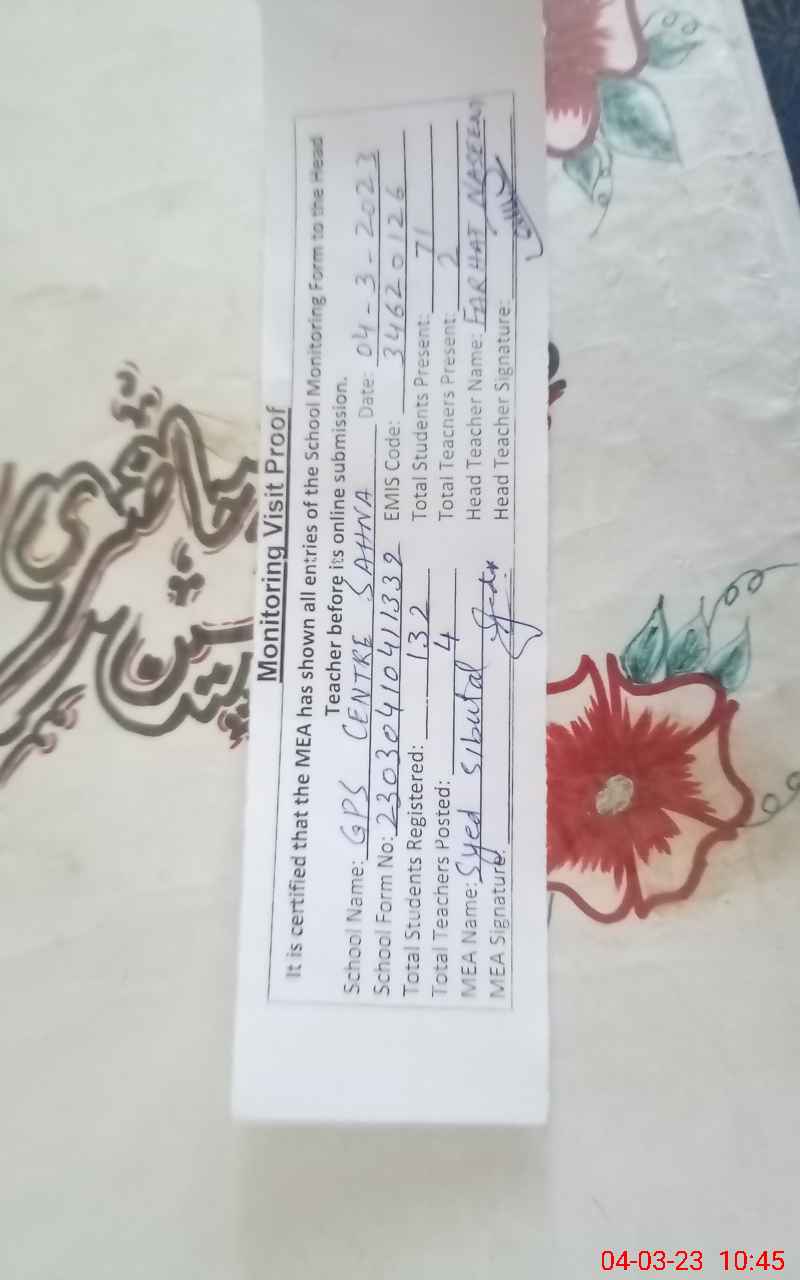 Monitoring Visit Proof
It is certified that the MEA has shown all entries of the School Monitoring Form to the Head
Teacher before its online submission.
School Name: GPS CENTRE SAHNA Date: 04-3-2023
School Form No: 23030410411332 EMIS Code: 34620126
Total Students Registered: 132 Total Students Present: 71
Total Teachers Posted: 4 Total Teachers Present: 2
MEA Name: Syed Sibutal Head Teacher Name: FARHAT NASEEM
MEA Signature: Head Teacher Signature:
04-03-23 10:45